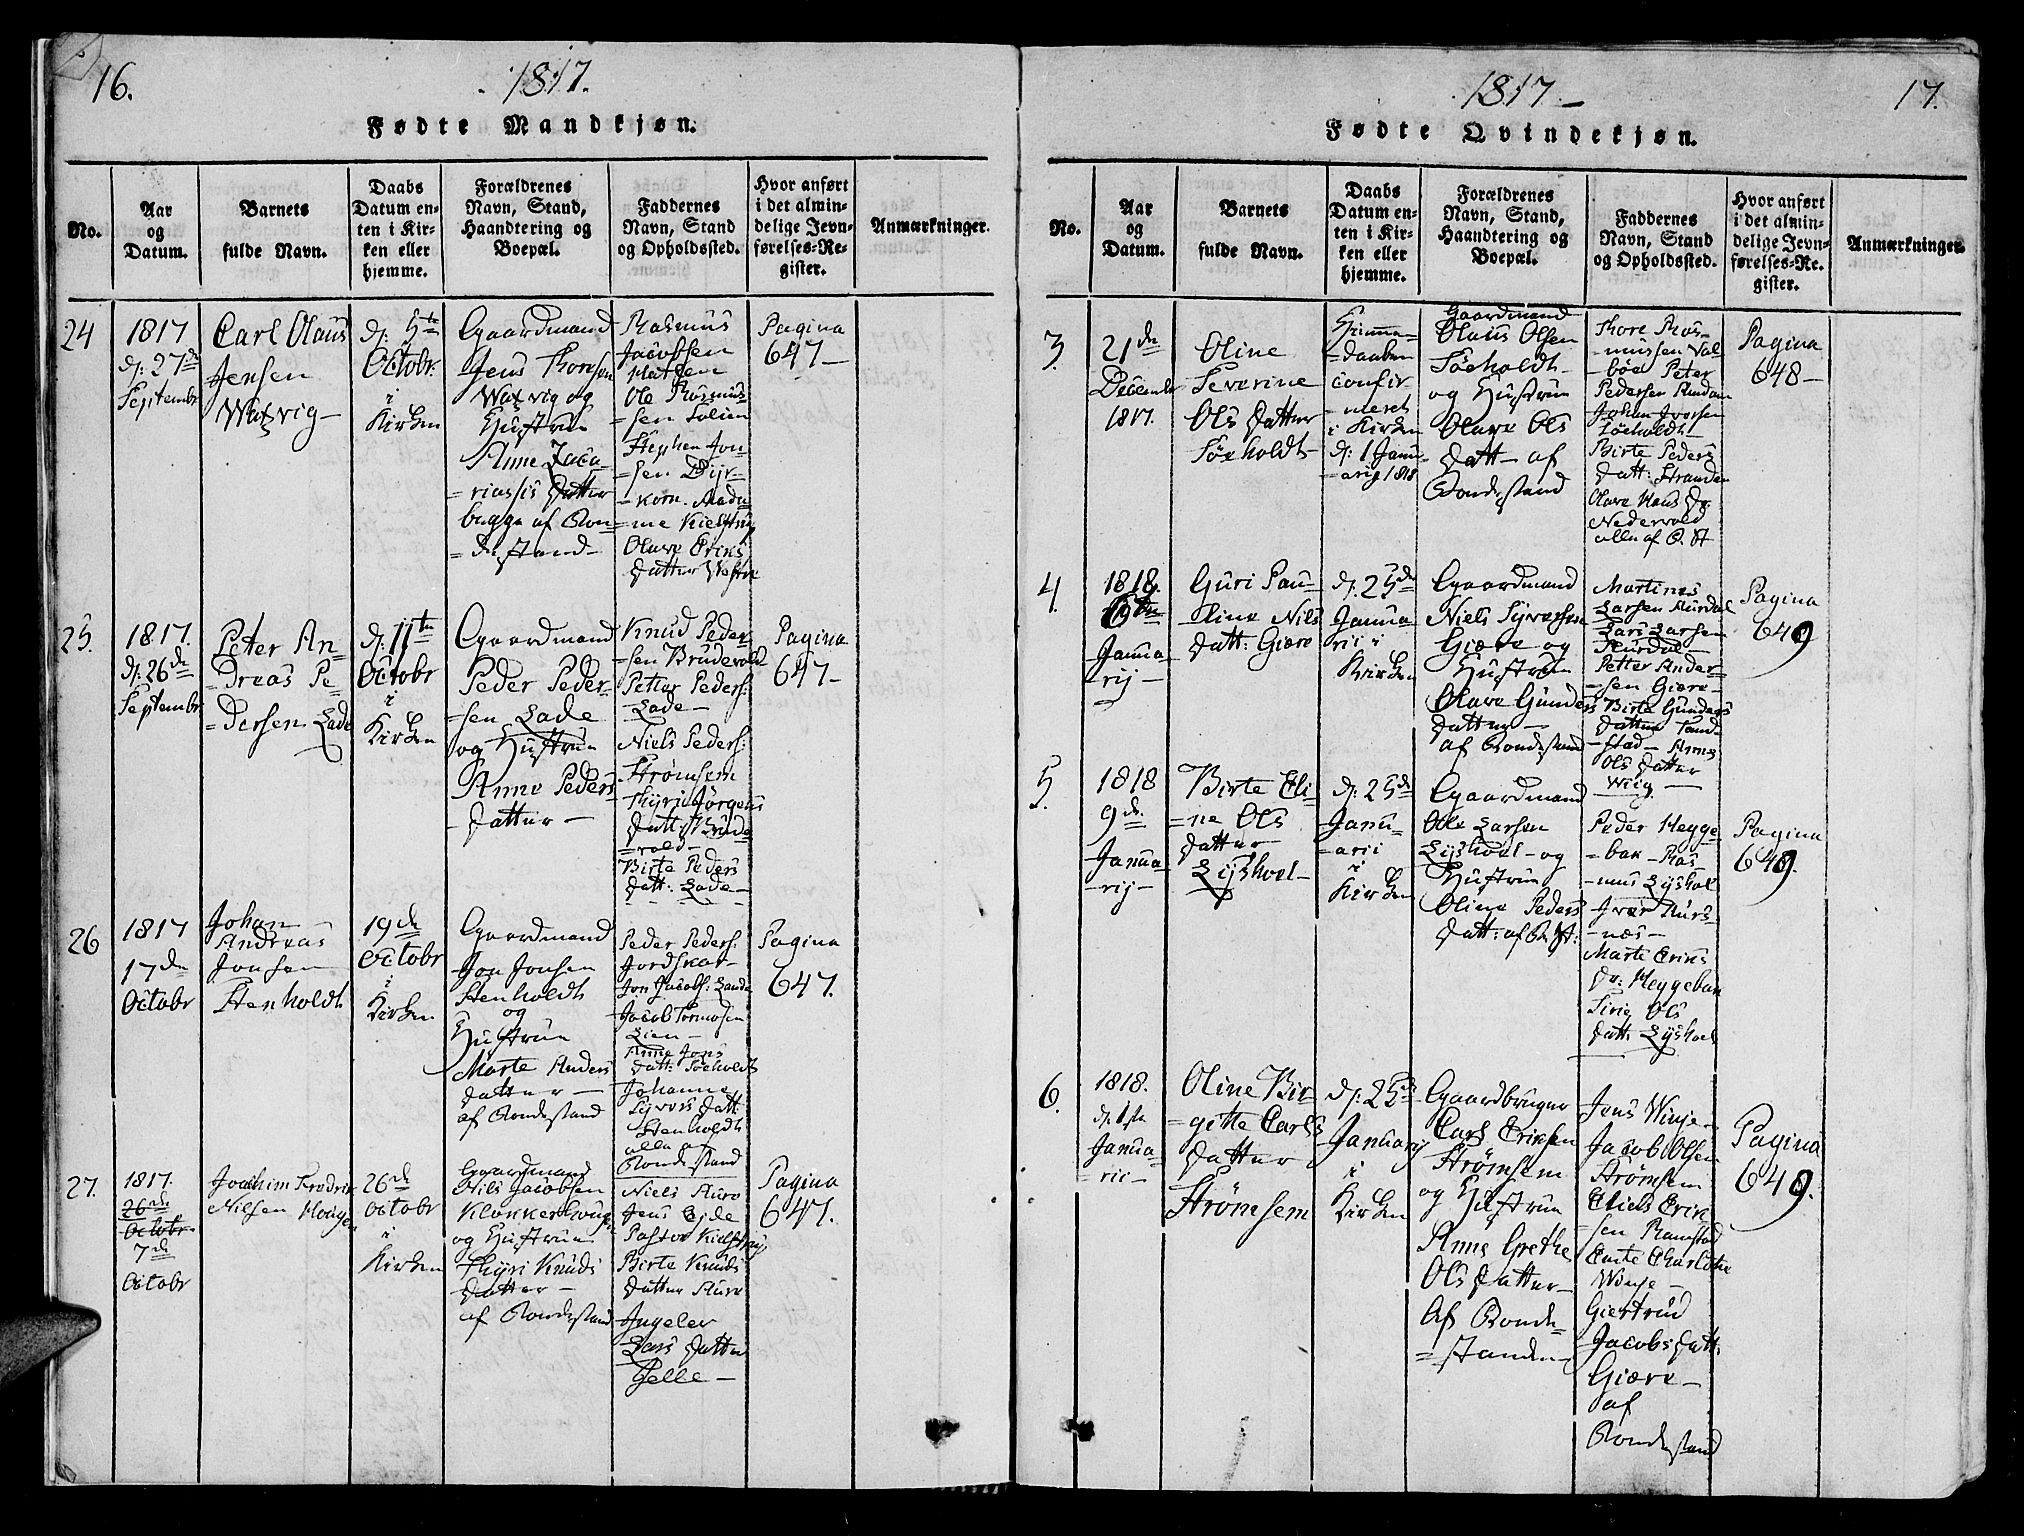 16.
1817.
Fødte Mandkjøn.
No.
Aar
og
Datum.
Barnets
fulde Navn.
Daabs
Datum en-
ten i Kir-
ken eller
hjemme.
Forældrenes
Navn, Stand,
Haandtering og
Boepæl.
Faddernes
Navn, Stand
og Opholdssted.
Hvor anført
i det almin-
delige Jevn-
førelses-Re-
gister.
Anmærkninger.
24
1817
d: 27de
Septembr
Carl Olaus
Jensen
Watvig
d: 5te
Octobr:
i
Kirken
Gaardmand
Jens Thomsen
Watvig og
Hustrue
Anne Zaca-
riasis Datter
begge af Bon-
destand
Rasmus
Jacobsen
Ole Rasmus-
sen
Stephen Jon-
sen Dyr-
korn. Mada-
me Kielstrup
Olave Eriks
Datter
Pagina
647
25.
1817.
d: 26de
Septembr
Peter An-
dreas Pe-
dersen Lade
d: 11te
Octobr
i
Kirken
Gaardmand
Peder Peder-
sen Lade
og Hustrue
Anne Peders
Datter
Knud Peder-
sen Brudevold
Petter Peders:
Lade
Niels Peders:
Strømsem
Thyri Jørgens
Datt: Brude-
vold
Birte Peders
Datt: Lade
Pagina
647
26
1817
17de
Octobr
Johan
Andreas
Jonsen
Stenholdt
19de
Octobr
i
Kirken
Gaardmand
Jon Jonsen
Stenholdt
og
Hustrue
Marte Anders
Datter
af Bondestand
Peder Peders:
Jon Jacobs: Lande
Jacob Tormosen
Lien
Anne Jons
Datt: Søeholdt
Johanne
Syvers Datt.
Stenholdt
alle af
Bondestand
Pagina
647.
27.
1817.
26de
Octobr
7de
Octobr
Joachim Fredrik
Nilsen Hougen
26de
Octobr
i
Kirken
Gaardmand
Nils Jacobsen
Klokkerhoug
og Hustrue
Thyri Knuds
Datter
af Bondestand
Niels Aure
Jens Ejde
Pastor Kielstrup
Birte Knuds
Datter Aure
Ingeler
Lars Datter
Gjelle
Pagina
647.
1817
17.
Fødte Qvindekjøn.
No.
Aar
og
Datum.
Barnets
fulde Navn.
Daabs
Datum en-
ten i Kir-
ken eller
hjemme.
Forældrenes
Navn, Stand,
Haandtering og
Boepæl.
Faddernes
Navn, Stand
og Opholdssted.
Hvor anført
i det almin-
delige Jevn-
førelses-Re-
gister.
Anmærkninger.
3
21de
Decembr
1817.
Oline
Severine
Ols Datter
Søeholdt
Hjemme-
daaben
confir-
meret
i Kirken
d: 1 Janu-
arij 1818
Gaardmand
Olaus Olsen
Søeholdt
og Hustrue
Olave Ols
Datt af
Bondestand
Thore Ras-
mussen Val-
böe Peter
Pedersen
Johan Iversen
Søeholdt
Birte Peders
Datt: Stranden
Olave Hans Dr.
Nedervold
alle af B. St
Pagina
648
4.
1818.
Janua-
rij
Guri Pau-
line Nils
Datt: Giære
d: 25de
Janua-
rii i
Kirken
Gaardmand
Niels Syversen
Giære og
Hustrue
Olave Gunders
Datter
af Bondestand
Martines
Larsen Aurdal
Lars Larsen
Aurdal
Petter Ander-
sen Giære
Birte Gunders
Datter Tand-
stad Anne
Ols Datter
Wiig
Pagina
649
5.
1818
9de
Janua-
rij
Birte Eli-
ne Ols
Datter
Lyshoel
d: 25de
Janu-
arii
i
Kirken
Gaardmand
Ole Larsen
Lyshoel og
Hustrue
Oline Peders
Datt: af B. St:
Peder Hegge-
bak Ras-
mus Lyshol
Iver Aurs-
næs
Marte Eriks
Dr: Heggebak
Sirie Ols
Datt: Lyshoel
Pagina
649.
6.
1818.
d: 1ste
Janua-
rii
Oline Bir-
gitte Carls
Datter
Strømsem
d: 25de
Januarij
i
Kirken
Gaardbruger
Carl Eriksen
Strømsem
og Hustrue
Anne Grethe
Ols Datter
Af Bonde-
standen
Jens Winje
Jacob Olsen
Strømsem
Eliels Erik-
sen Ramstad
Charlothe
Winje
Giertrud
Jacobs Datt:
Giære
af
Bondestand
Pagina
649.